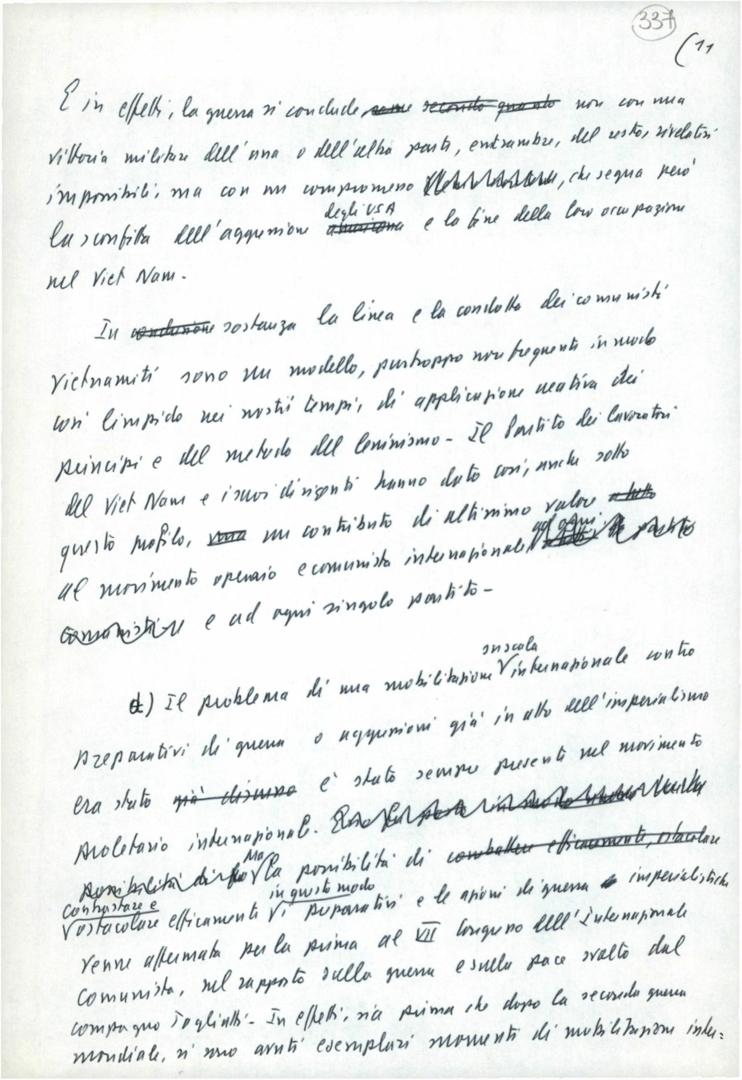 337
(11
E in effetti, la guerra si conclude, come secondo quanto non con una
vittoria militare dell'una o dell'altra parte, entrambe, del resto, rivelatesi
impossibili, ma con un compromesso, che segna però
degli USA
la sconfitta dell'aggressione americana e la fine della loro occupazione
nel Viet Nam.
In conclusione sostanza la linea e la condotta dei comunisti
vietnamiti sono un modello, purtroppo non frequente in modo
così limpido nei nostri tempi, di applicazione creativa dei
principi e del metodo del leninismo - Il Partito dei lavoratori
del Viet Nam e i suoi dirigenti hanno dato così, anche sotto
questo profilo, una un contributo di altissimo valore a tutto
ad ogni
al movimento operaio e comunista internazionale partito
comunista e ad ogni singolo partito -
su scala
d) Il problema di una mobilitazione internazionale contro
preparativi di guerra o aggressioni già in atto dell'imperialismo
era stato già discusso è stato sempre presente nel movimento
proletario internazionale.
possibilità di Ma la possibilità di combattere efficacemente, ostacolare
contrastare e in questo modo
ostacolare efficacemente i preparativi e le azioni di guerra imperialistiche
venne affermata per la prima al VII Congresso dell'Internazionale
Comunista, nel rapporto sulla guerra e sulla pace svolto dal
compagno Togliatti - In effetti, sia prima che dopo la seconda guerra
mondiale, si sono avuti esemplari momenti di mobilitazione inter=